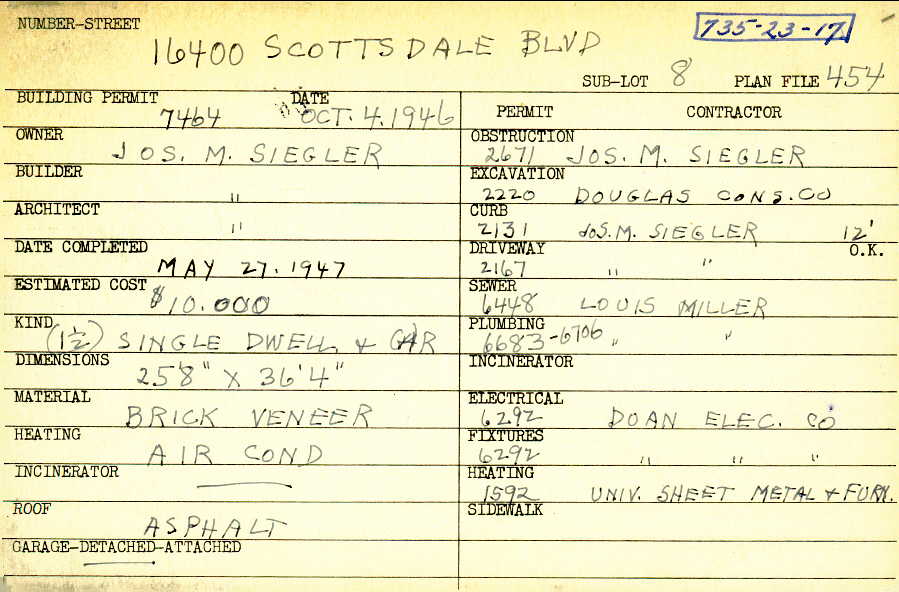 NUMBER-STREET
16400 SCOTTSDALE BLVD
735-23-17
SUB-LOT 8 PLAN FILE 454
BUILDING PERMIT 7464 DATE OCT. 4. 1946
OWNER JOS. M. SIEGLER
BUILDER "
ARCHITECT "
DATE COMPLETED MAY 27. 1947
ESTIMATED COST $10.000
KIND (1½) SINGLE DWELL. & GAR
DIMENSIONS 25'8" X 36'4"
MATERIAL BRICK VENEER
HEATING AIR COND
INCINERATOR ——
ROOF ASPHALT
GARAGE-DETACHED-ATTACHED
PERMIT CONTRACTOR
OBSTRUCTION 2671 JOS. M. SIEGLER
EXCAVATION 2220 DOUGLAS CONS. CO
CURB 2131 JOS. M. SIEGLER 12'
DRIVEWAY 2167 " " O.K.
SEWER 6448 LOUIS MILLER
PLUMBING 6683-6706 " "
INCINERATOR
ELECTRICAL 6292 DOAN ELEC. CO
FIXTURES 6292 " " "
HEATING 1592 UNIV. SHEET METAL & FURN.
SIDEWALK